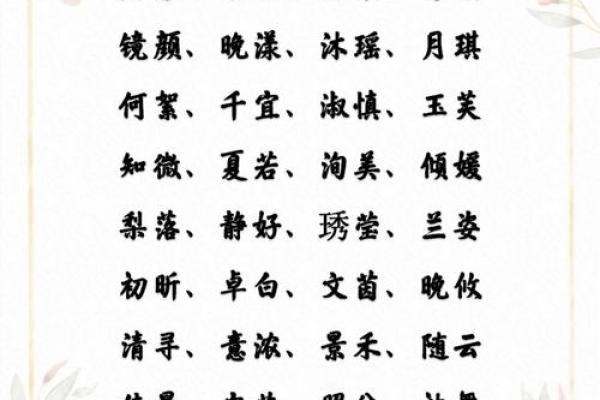 镜颜、晚漾、沐瑶、月琪
何絮、千宜、淑慎、玉芙
知微、夏若、洵美、倾媛
梨落、静好、琇莹、兰姿
初昕、卓白、文茵、晚攸
清寻、意浓、景禾、随云